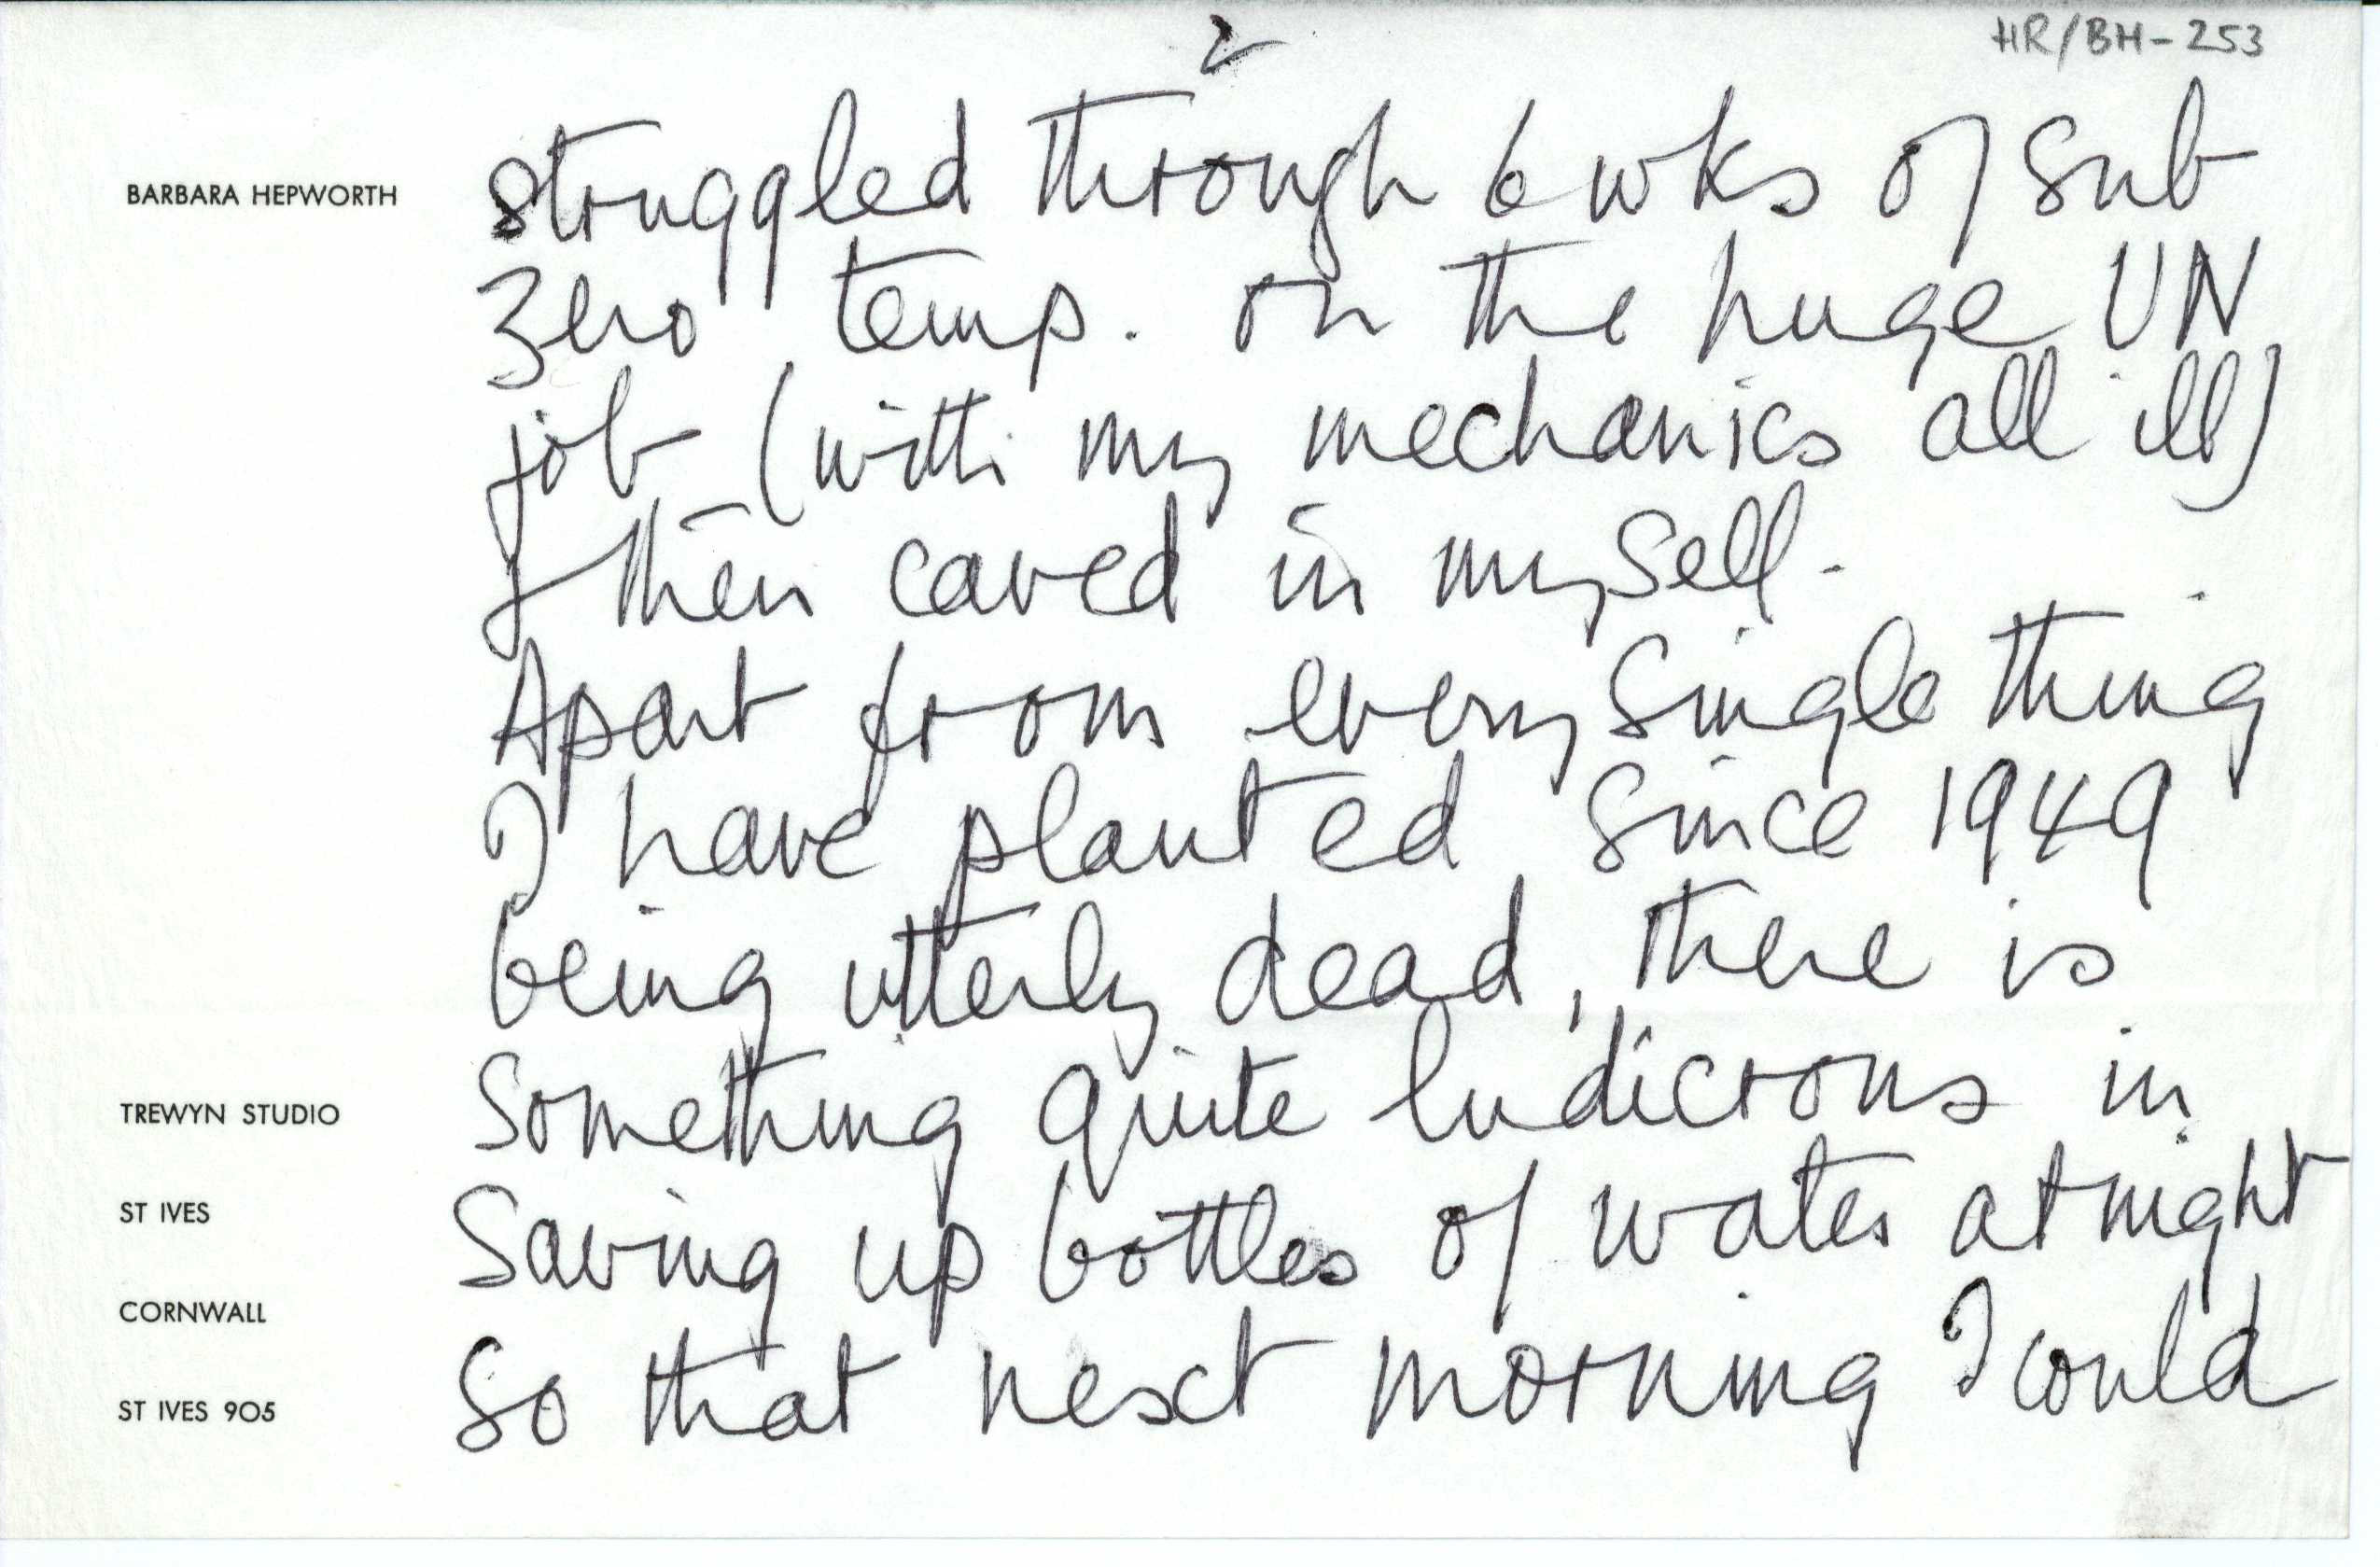 2
HR/BH-253
BARBARA HEPWORTH
struggled through 6 wks of sub
zero temp. on the huge UN
job (with my mechanics all ill)
& then caved in myself.
Apart from every single thing
I have planted since 1949
being utterly dead, there is
something quite ludicrous in
saving up bottles of water at night
so that next morning I could
TREWYN STUDIO
ST IVES
CORNWALL
ST IVES 905